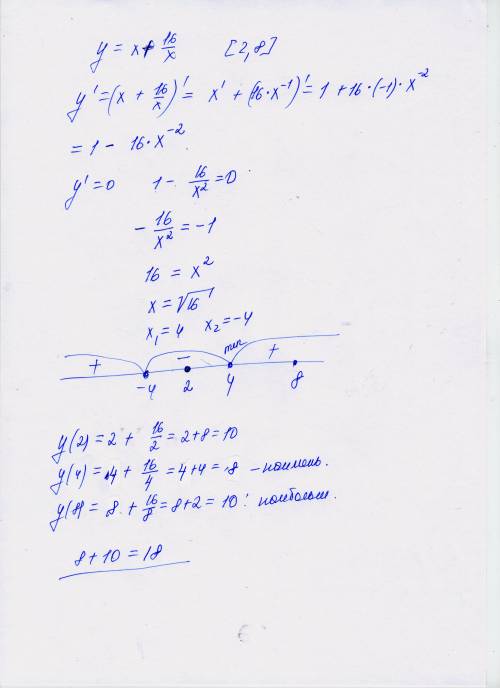 y = x + 16/x [2,8]
y' = (x + 16/x)' = x' + (16·x⁻¹)' = 1 + 16·(-1)·x⁻²
= 1 - 16·x⁻²
y' = 0 1 - 16/x² = 0
- 16/x² = -1
16 = x²
x = √16
x₁ = 4 x₂ = -4
+ - min +
-4 2 4 8
y(2) = 2 + 16/2 = 2+8 = 10
y(4) = 4 + 16/4 = 4+4 = 8 - наимень.
y(8) = 8 + 16/8 = 8+2 = 10 наибольш.
8 + 10 = 18